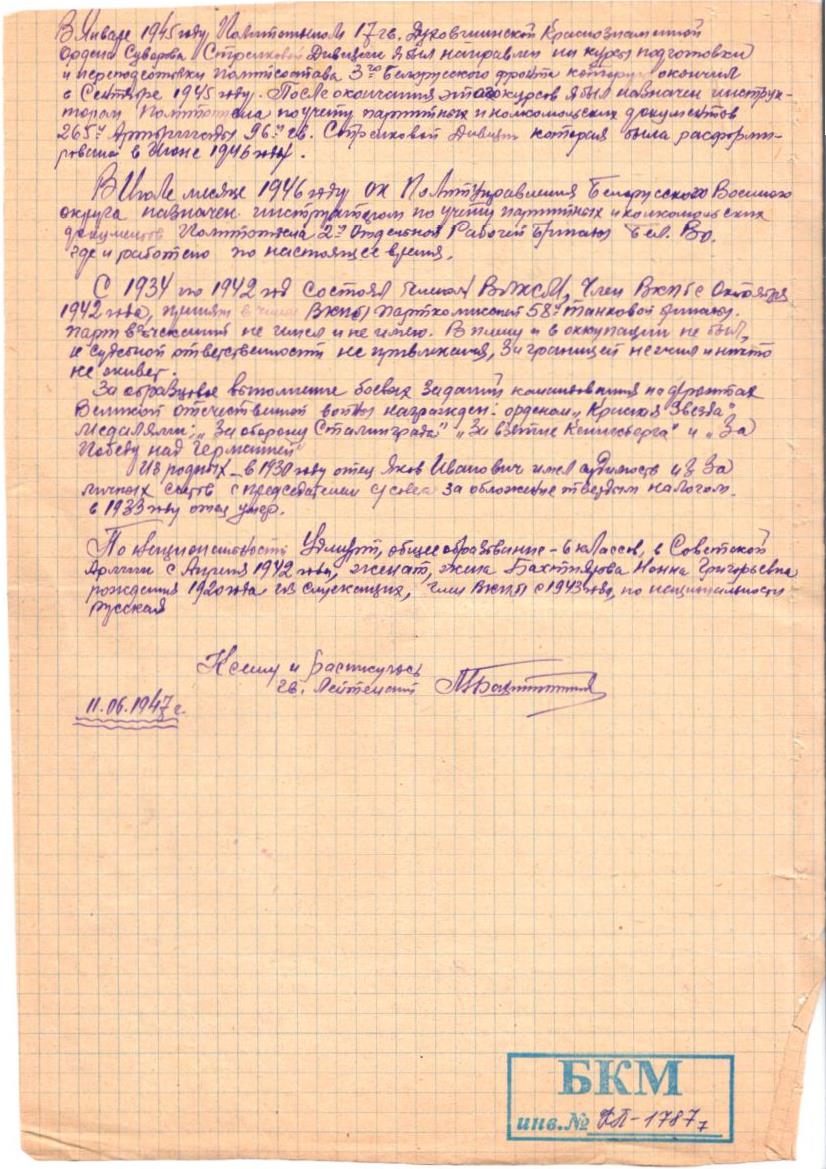 В Январе 1945 году Политотделом 17 гв. Духовщинской Краснознаменной
Ордена Суворова Стрелковой Дивизии я был направлен на курсы подготовки
и переподготовки политсостава 3го Белорусского фронта которую окончил
в Сентябре 1945 году. После окончания этого курсов я был назначен инструк-
тором Политотдела по учету партийных и комсомольских документов
265й Артбригады 96й гв. Стрелковой Дивизии которая была расформи-
рована в Июне 1946 году.
В Июле месяце 1946 году ОК Политуправления Белорусского Военного
округа назначен инструктором по учету партийных и комсомольских
документов Политотдела 2й Отдельной Рабочей бригады Бел. Во.
где и работаю по настоящее время.
С 1934 по 1942 год состоял членом ВЛКСМ, Член ВКПб с Октября
1942 года, принят в члены ВКПб парткомиссией 58й танковой бригады.
парт взысканий не имел и не имею. В плену и в оккупации не был,
к судебной ответственности не привлекался, За границей не был и никто
не живет.
За образцовое выполнение боевых заданий командования на фронтах
Великой отечественной войны награжден: орденом „Красная Звезда"
Медалями: „За оборону Сталинграда" „За взятие Кенигсберга" и „За
Победу над Германией"
Из родных – в 1930 году отец Яков Иванович имел судимость из за
личных счетов с председателем с/совета за обложение твердым налогом.
в 1933 году отец умер.
По национальности Удмурт, общее образование – 6 классов, в Советской
Армии с Апреля 1942 года, женат, жена Бахтиярова Нонна Григорьевна
рождения 1920 года из служащих, член ВКПб с 1943 года, по национальности
русская
К сему и расписуюсь
гв. Лейтенант
11.06.1947 г.
БКМ
инв.№ КП-1787 7